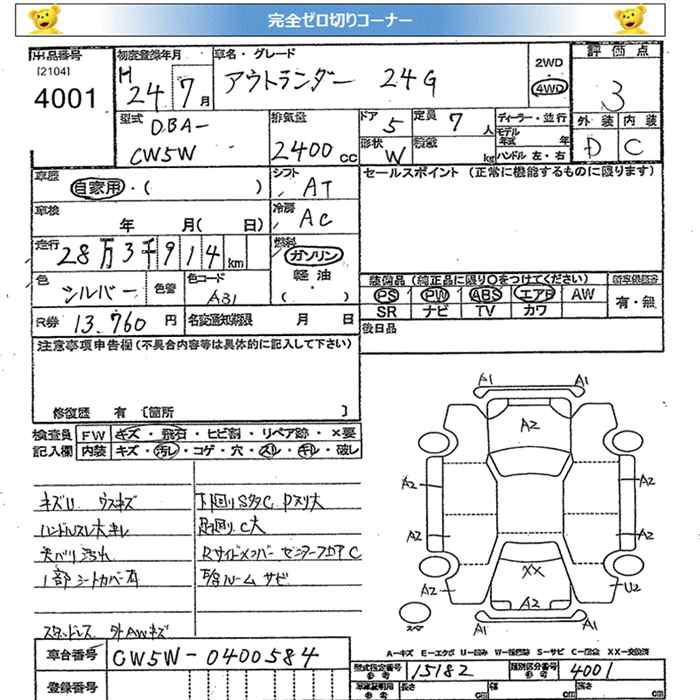 完全ゼロ切りコーナー
出品番号
[2104]
4001
初度登録年月
H 24 7 月
車名・グレード
アウトランダー 24G
2WD
4WD
評価点
3
外装 内装
D C
型式
DBA-
CW5W
排気量
2400 cc
ドア 5
定員 7 人
形状 W
積載 kg
ディーラー・並行
モデル年式 年
ハンドル 左・右
車歴
自家用・( )
シフト
AT
セールスポイント (正常に機能するものに限ります)
車検
年 月( 日)
冷房
AC
走行
28万3千914km
燃料
ガソリン
軽油
・( )
色
シルバー
色替
色コード
A31
装備品 (純正品に限り○をつけてください)
PS PW ABS エアB AW
SR ナビ TV カワ
有・無
R券 13,760 円
名変通知期限 月 日
後日品
注意事項申告欄 (不具合内容等は具体的に記入して下さい)
修復歴 有 [箇所 ]
検査員記入欄
FW キズ・飛石・ヒビ割・リペア跡・×要
内装 キズ・汚れ・コゲ・穴・スレ・キレ・破し
キズU ウスキズ
ハンドルスレ大キレ
天ベリ汚れ
1部シートカバー有
スタッドレス 外AWキズ
下回りSタCタスリ大
足廻りC大
RサイドメンバーセンターフロアC
E/Gルームサビ
A1 A1
A2
A2 A2
A2 A2
XX
A2 A2 U2
A1 A1
スペア
A-キズ E-エクボ U-凹み W-補修跡 S-サビ C-腐食 XX-交換済
車台番号 CW5W-0400584
登録番号
型式指定番号 参考 15182
類別区分番号 参考 4001
長さ cm
幅 cm
高さ cm